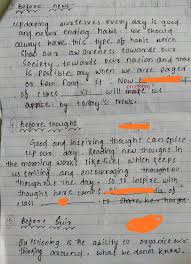 Before news
updating ourselves everyday is good
and never ending habit. We should
always have this type of habit which
shows our awareness towards our
society towards our nation and that
is possible only when we are eager
to know it. Now
of class will make us
aware by today's news.
4) Before thought
Good and inspiring thought can spice
up our day. Reading new thought in
the morning works like which keeps
us smiling and encouraging
throughout the day. So to inspire with
thought here comes of
class
5) Before Quiz
Questioning is the ability to organize our
thinking around, what we do not know.